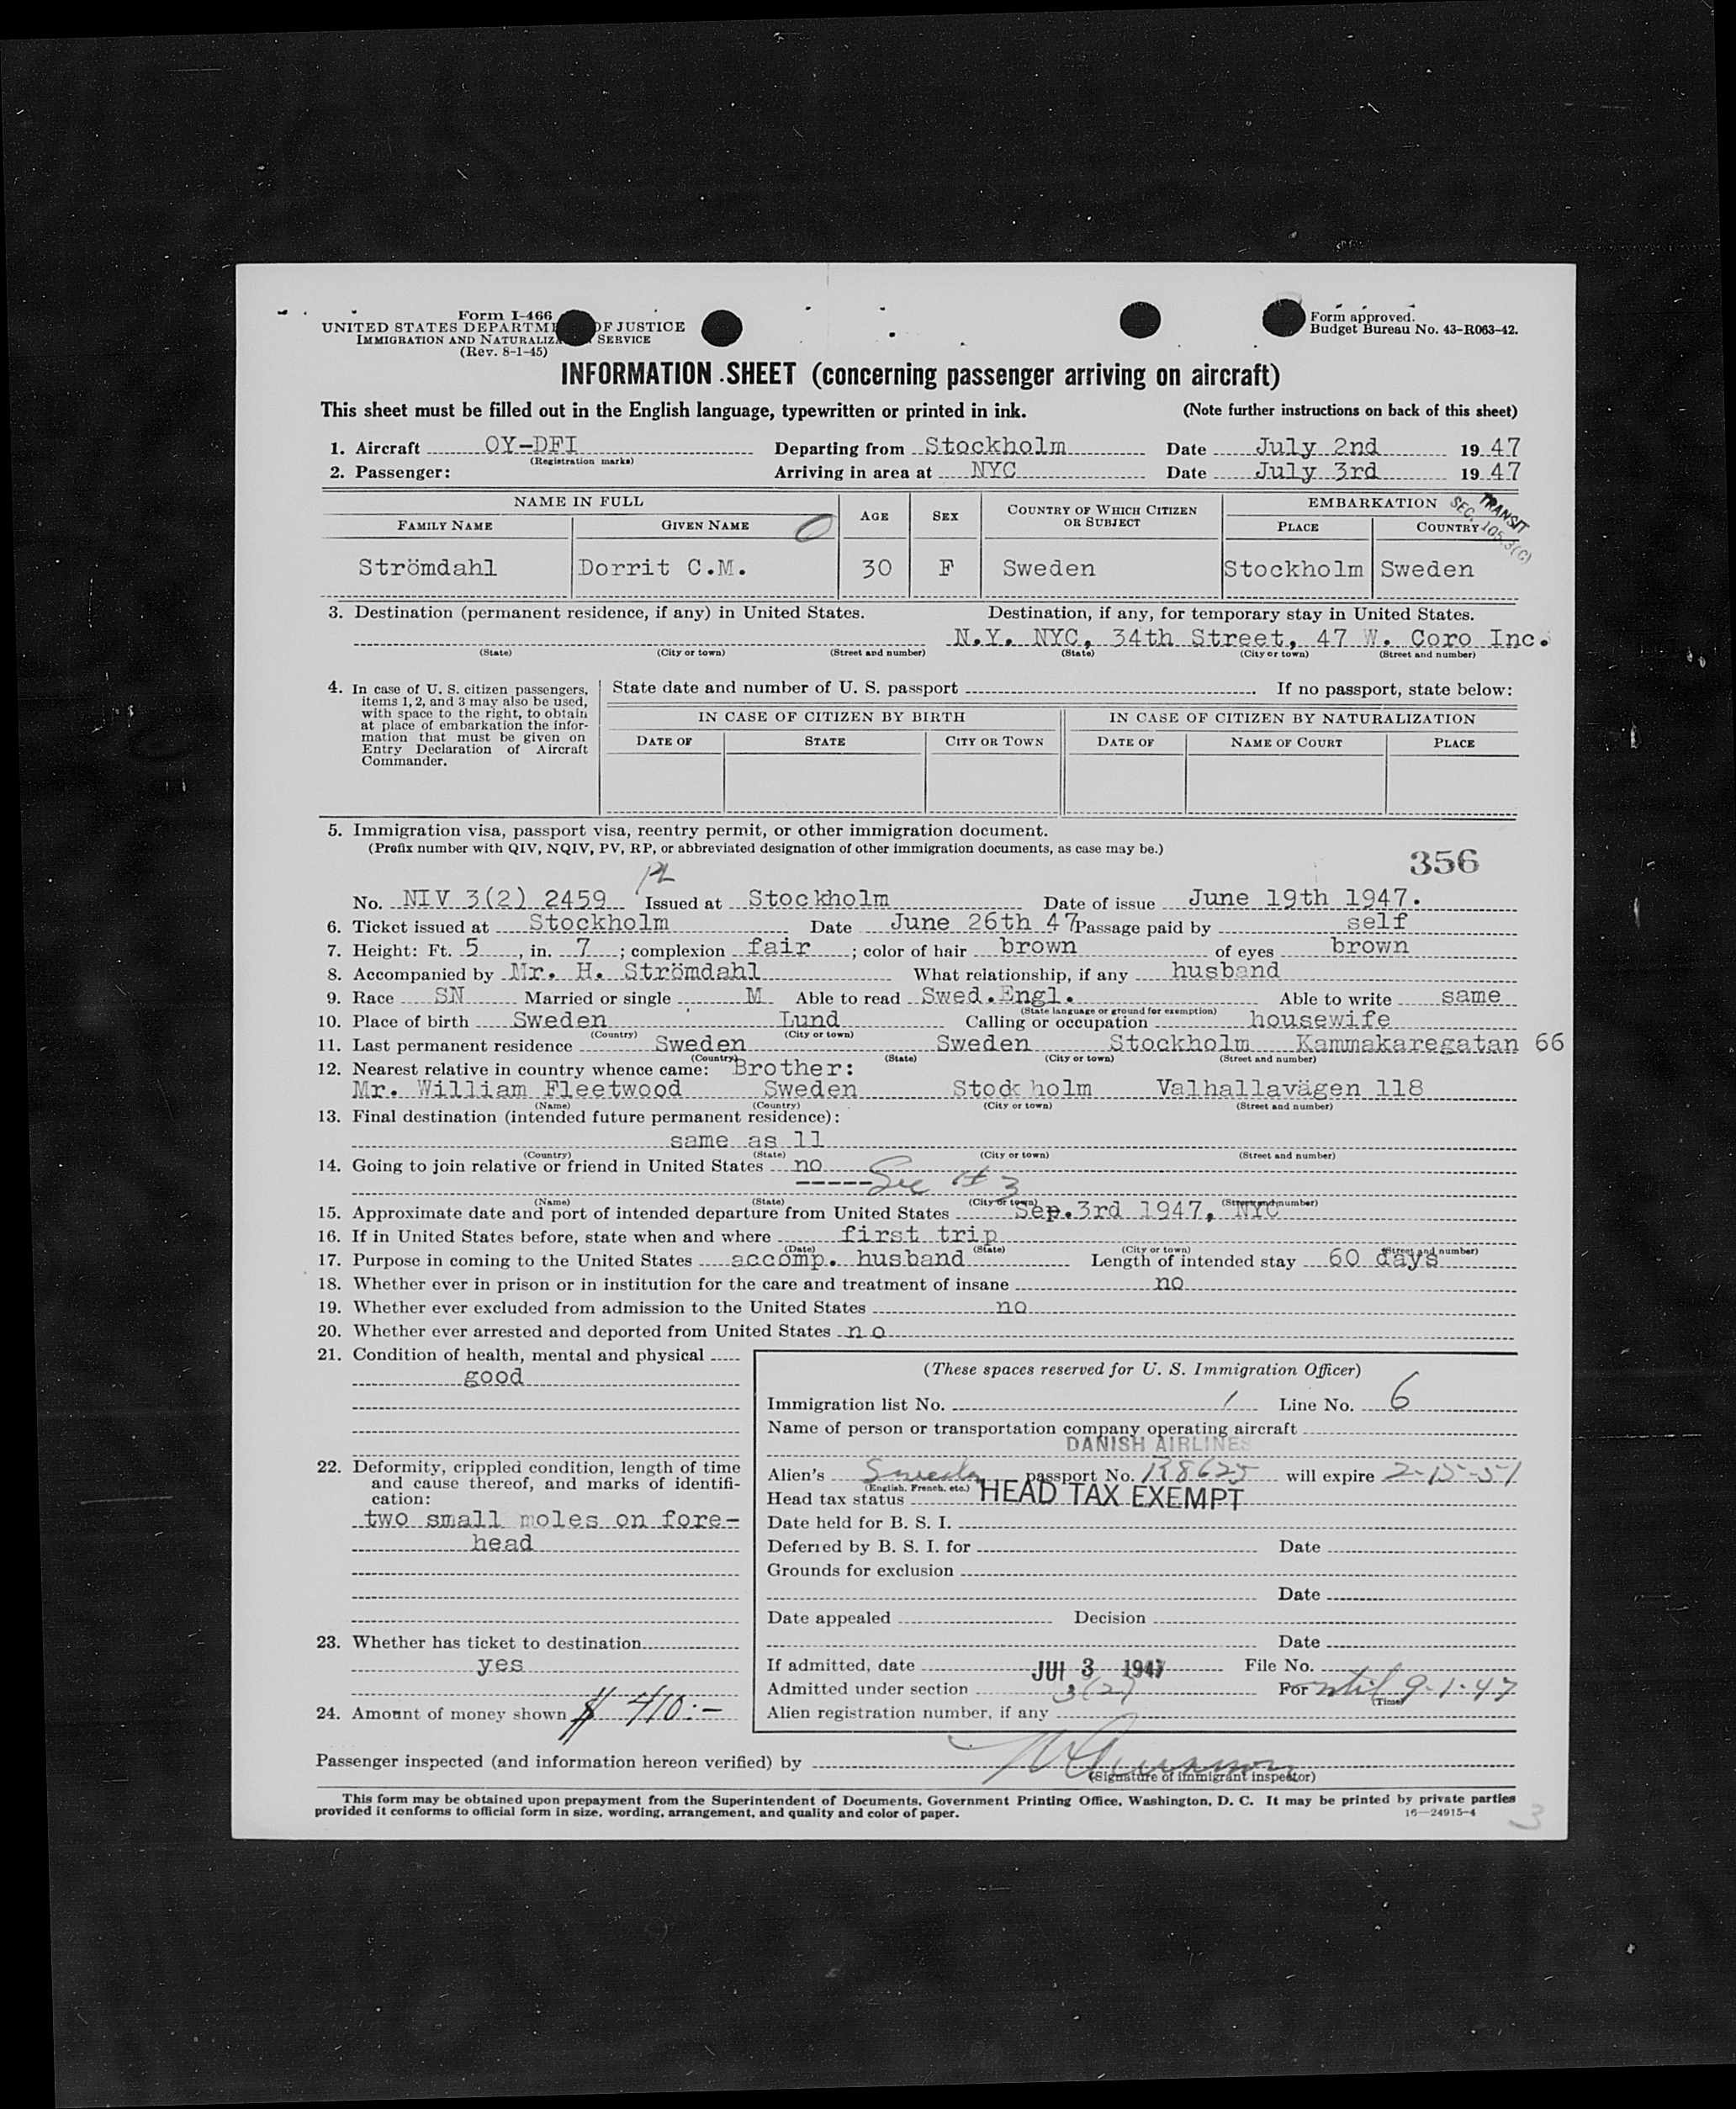 Form I-466
UNITED STATES DEPARTME OF JUSTICE
IMMIGRATION AND NATURALIZA SERVICE
(Rev. 8-1-45)
Form approved.
Budget Bureau No. 43-R063-42.
INFORMATION SHEET (concerning passenger arriving on aircraft)
This sheet must be filled out in the English language, typewritten or printed in ink. (Note further instructions on back of this sheet)
1. Aircraft OY-DFI Departing from Stockholm Date July 2nd 1947
(Registration marks)
2. Passenger: Arriving in area at NYC Date July 3rd 1947
NAME IN FULL AGE SEX COUNTRY OF WHICH CITIZEN OR SUBJECT EMBARKATION
TRANSIT
SEC. 105.3(C)
FAMILY NAME GIVEN NAME PLACE COUNTRY
Strömdahl Dorrit C.M. 30 F Sweden Stockholm Sweden
3. Destination (permanent residence, if any) in United States. Destination, if any, for temporary stay in United States.
N.Y. NYC, 34th Street, 47 W. Coro Inc.
(State) (City or town) (Street and number) (State) (City or town) (Street and number)
4. In case of U. S. citizen passengers, items 1, 2, and 3 may also be used, with space to the right, to obtain at place of embarkation the information that must be given on Entry Declaration of Aircraft Commander.
State date and number of U. S. passport If no passport, state below:
IN CASE OF CITIZEN BY BIRTH IN CASE OF CITIZEN BY NATURALIZATION
DATE OF STATE CITY OR TOWN DATE OF NAME OF COURT PLACE
5. Immigration visa, passport visa, reentry permit, or other immigration document.
(Prefix number with QIV, NQIV, PV, RP, or abbreviated designation of other immigration documents, as case may be.)
356
No. NIV 3(2) 2459 Issued at Stockholm Date of issue June 19th 1947.
6. Ticket issued at Stockholm Date June 26th 47 Passage paid by self
7. Height: Ft. 5, in. 7; complexion fair; color of hair brown of eyes brown
8. Accompanied by Mr. H. Strömdahl What relationship, if any husband
9. Race SN Married or single M Able to read Swed.Engl. Able to write same
(State language or ground for exemption)
10. Place of birth Sweden Lund Calling or occupation housewife
(Country) (City or town)
11. Last permanent residence Sweden Sweden Stockholm Kammakaregatan 66
(Country) (State) (City or town) (Street and number)
12. Nearest relative in country whence came: Brother:
Mr. William Fleetwood Sweden Stockholm Valhallavägen 118
(Name) (Country) (City or town) (Street and number)
13. Final destination (intended future permanent residence):
same as 11
(Country) (State) (City or town) (Street and number)
14. Going to join relative or friend in United States no
----- See # 3
(Name) (State) (City or town) (Street and number)
15. Approximate date and port of intended departure from United States Sep.3rd 1947, NYC
16. If in United States before, state when and where first trip
(Date) (State) (City or town) (Street and number)
17. Purpose in coming to the United States accomp. husband Length of intended stay 60 days
18. Whether ever in prison or in institution for the care and treatment of insane no
19. Whether ever excluded from admission to the United States no
20. Whether ever arrested and deported from United States no
21. Condition of health, mental and physical
good
22. Deformity, crippled condition, length of time and cause thereof, and marks of identification:
two small moles on fore-
head
23. Whether has ticket to destination
yes
24. Amount of money shown $ 410:-
(These spaces reserved for U. S. Immigration Officer)
Immigration list No. 1 Line No. 6
Name of person or transportation company operating aircraft
DANISH AIRLINES
Alien's passport No. will expire 2-15-51
(English, French, etc.)
Head tax status HEAD TAX EXEMPT
Date held for B. S. I.
Deferred by B. S. I. for Date
Grounds for exclusion
Date
Date appealed Decision
Date
If admitted, date JUL 3 1947 File No.
Admitted under section 3(2) For until 9-1-47
(Time)
Alien registration number, if any
Passenger inspected (and information hereon verified) by
(Signature of immigrant inspector)
This form may be obtained upon prepayment from the Superintendent of Documents, Government Printing Office, Washington, D. C. It may be printed by private parties
provided it conforms to official form in size, wording, arrangement, and quality and color of paper. 16—24915-4
3